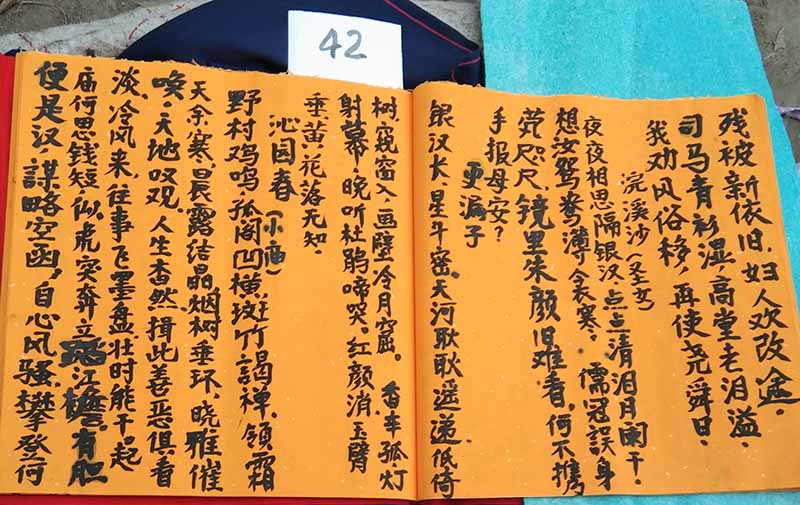 42
残被新依旧，妇人欢改途。
司马青衫湿，高堂老泪溢，
我劝风俗移，再使尧舜日。
浣溪沙（圣女）
夜夜相思隔银汉，点点清泪月阑干。
想汝鸳鸯薄衾寒。儒冠误身
咫尺，镜里朱颜旧难看，何不携
手报母安？
更漏子
银汉长，星斗密，天河耿耿遥递，低倚
树，窥窗入，画壁冷月窟。香车孤灯
射幕，晚听杜鹃啼哭。红颜消玉臂
垂，黄花落无知。
沁园春
（小庙）
野村鸡鸣孤阁凹横，竹謁禅，领霜
天余寒，晨露结晶，烟树垂环，晓雅催
唤，天地叹观，人生杳然，揖此善恶俱看
淡，冷风来，往事飞墨盘，壮时能干起
庙何思钱短，似虎突奔立江，有胆
便是汉，謀略空函，自心风骚，攀登何